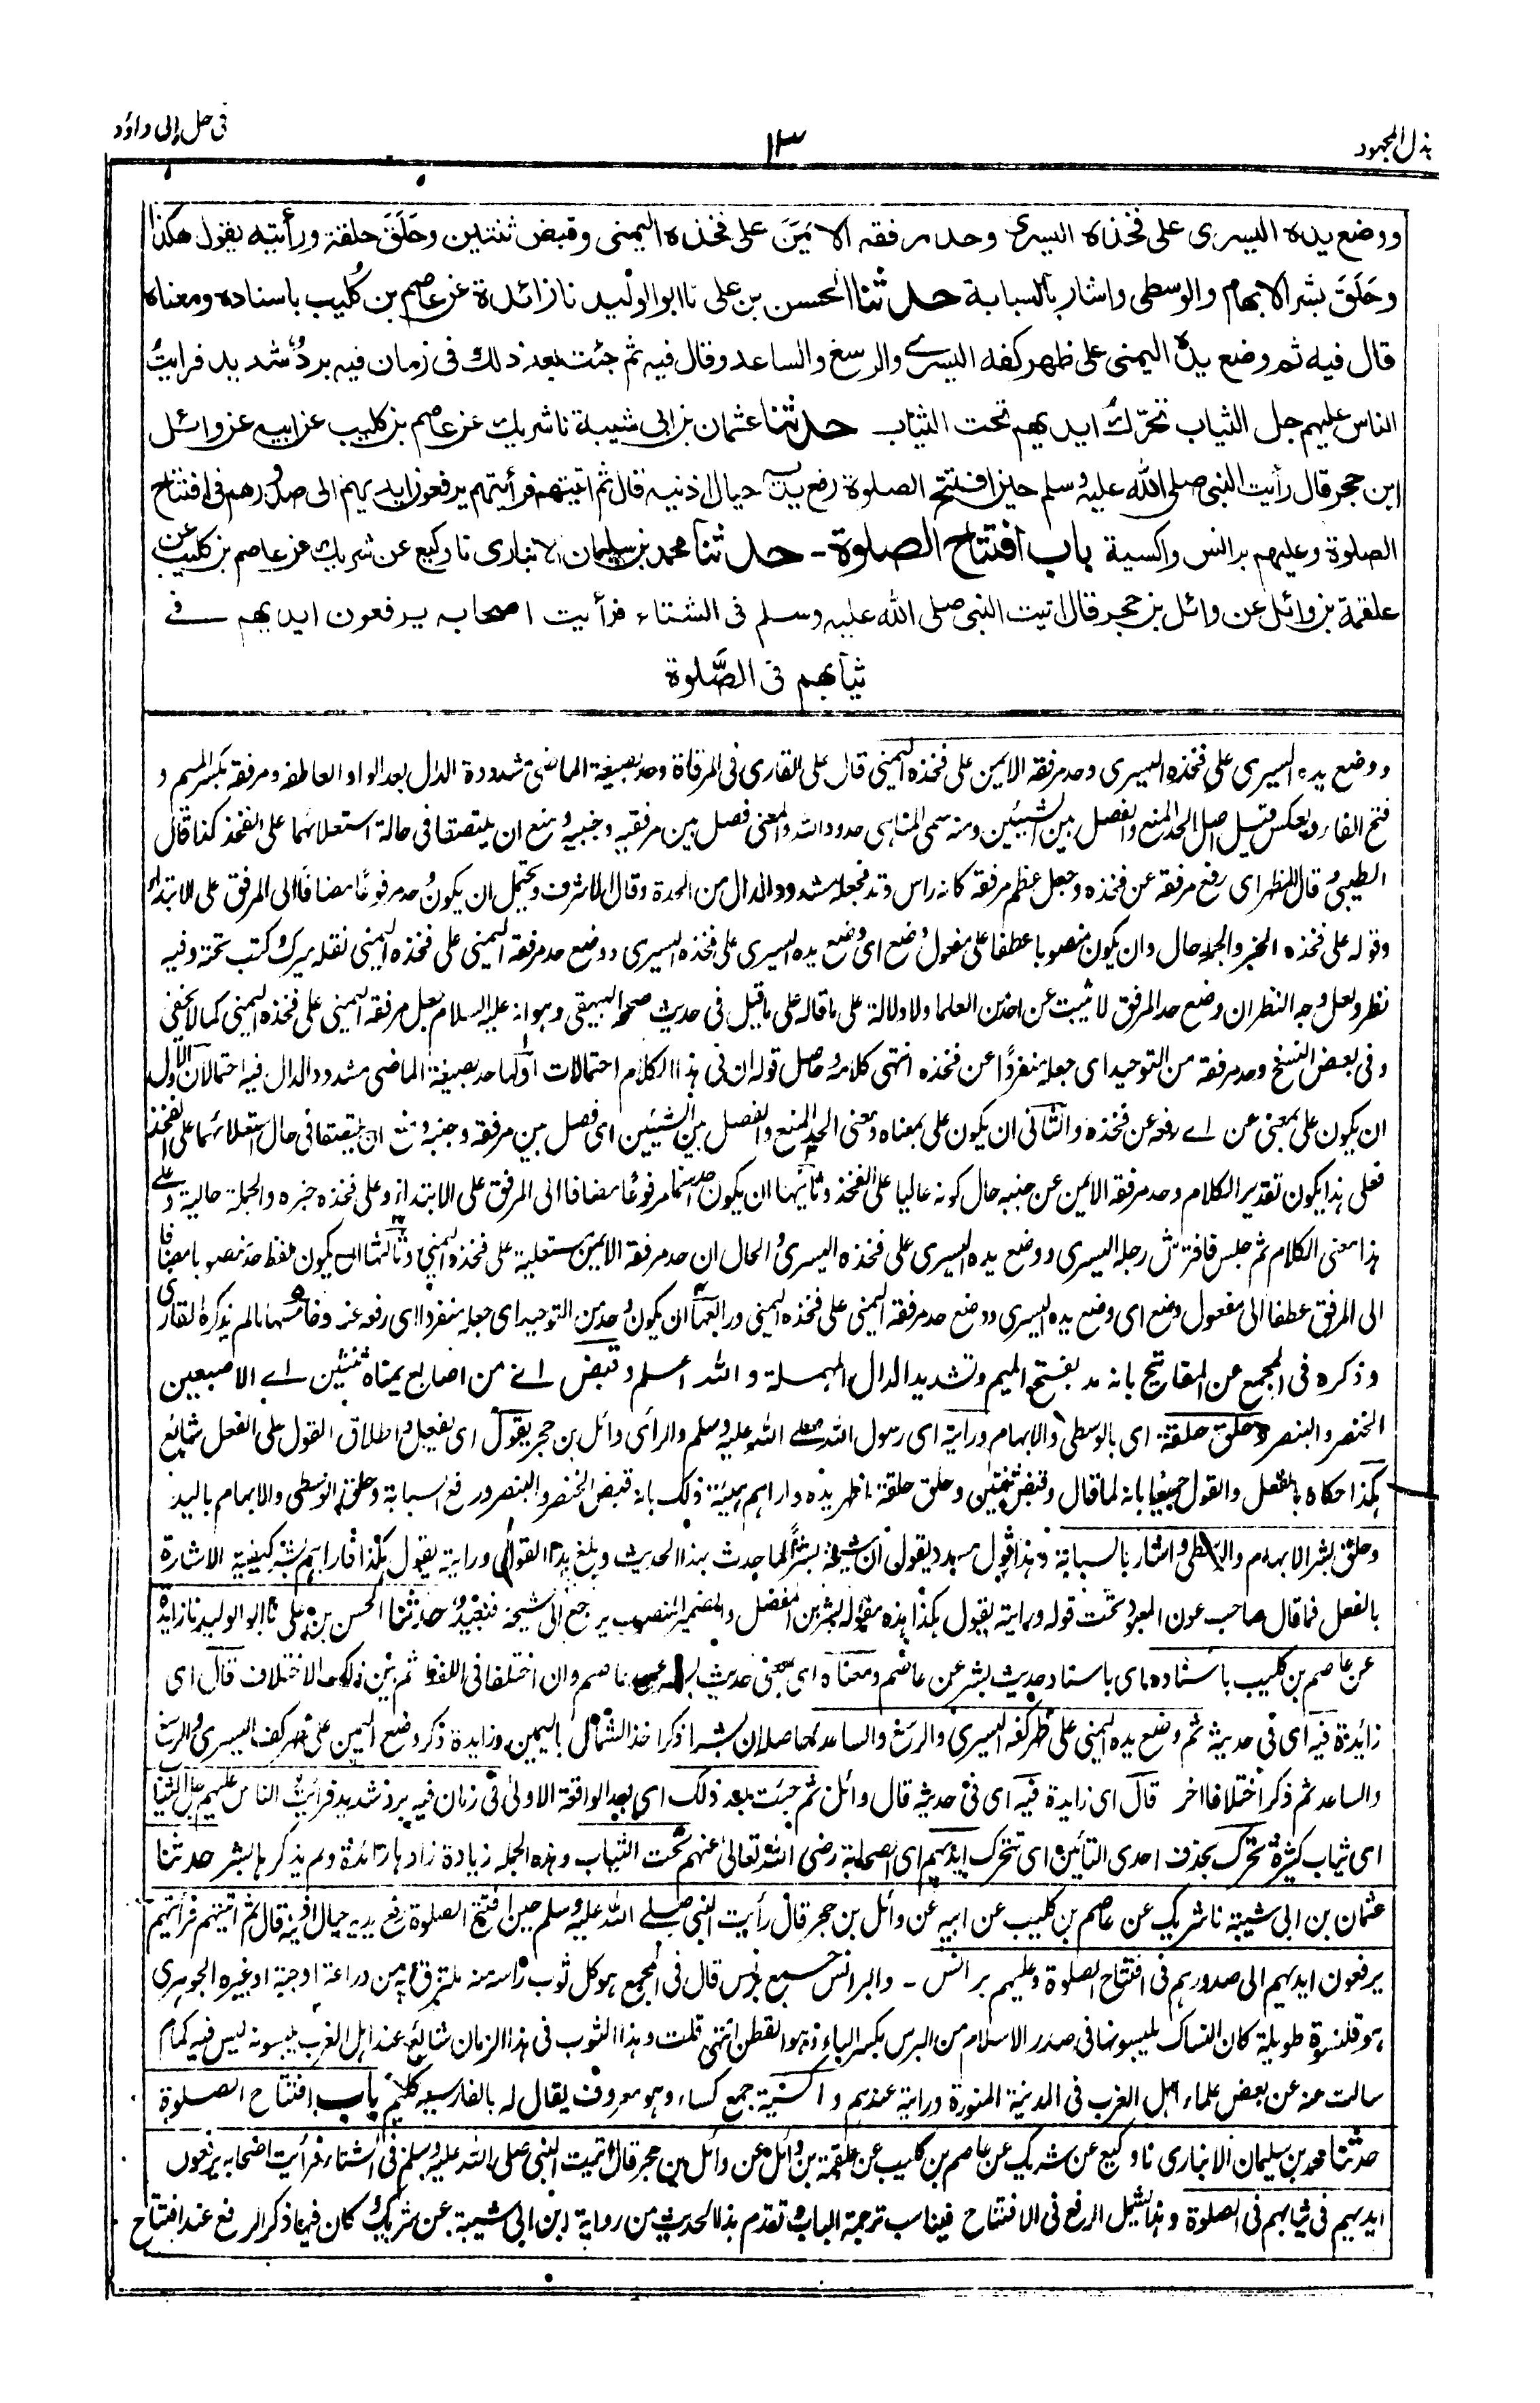 بذل المجهود
١٣
فى حل ابى داؤد
ووضع يده اليسرى على فخذه اليسرى وحد مرفقه الايمن على فخذه اليمنى وقبض ثنتين وحَلَّقَ حلقة ورأيته يقول هكذا
وحَلَّقَ بشر الابهام والوسطى واشار بالسبابة حدثنا الحسن بن على نا ابوالوليد نا زائدة عن عاصم بن كُليب باسناده ومعناه
قال فيه ثم وضع يده اليمنى على ظهر كفه اليسرے والرسغ والساعد وقال فيه ثم جئت بعد ذلك فى زمان فيه بردٌ شديد فرايتُ
الناس عليهم جل الثياب تحرّك ايديهم تحت الثياب حدثنا عثمان بن ابى شيبة نا شريك عن عاصم بن كليب عن ابيه عن وائل
ابن حجر قال رأيت النبى صلى الله عليه وسلم حين افتتح الصلوة رفع يديه حيال اذنيه قال ثم اتيتهم فرأيتهم يرفعون ايديهم الى صدورهم فى افتتاح
الصلوة وعليهم برانس واكسية باب افتتاح الصلوة - حدثنا محمد بن سليمان الانبارى نا وكيع عن شريك عن عاصم بن كليب عن
علقمة بن وائل عن وائل بن حجر قال اتيت النبى صلى الله عليه وسلم فى الشتاء فرأيت اصحابه يرفعون ايديهم فى
ثيابهم فى الصَّلوة
ووضع يده اليسرى على فخذه اليسرى وحد مرفقه الايمن على فخذه اليمنى قال على القارى فى المرقاة وحد بصيغة الماضى مشددة الدال بعد الواو العاطفه ومرفقه بكسر الميم و
فتح الفاء وبعكس قيل اصل الحد المنع والفصل بين الشيئين ومنه سمى المناهى حدود الله والمعنى فصل بين مرفقيه وجنبيه ومنع ان يلتصقا فى حالة استعلائهما على الفخذ كذا قال
الطيبى وقال المظهر اى رفع مرفقه عن فخذه وجعل عظم مرفقه كانه راس وتد فجعله مشدود الدال من الحدة وقال الاشرف ويحتمل ان يكون حد مرفوعًا مضافًا الى المرفق على الابتداء
وقوله على فخذه الخبر والجملة حال وان يكون منصوبا عطفا على مفعول وضع اى وضع يده اليسرى على فخذه اليسرى ووضع حد مرفقه اليمنى على فخذه اليمنى نقله ميرك وكتب تحته وفيه
نظر ولعل وجه النظر ان وضع حد المرفق لا يثبت عن احد من العلماء ولا دلالة على ما قاله على ما قيل فى حديث صححه البيهقى وهو انه عليه السلام جعل مرفقه اليمنى على فخذه اليمنى كما لا يخفى
وفى بعض النسخ وحد مرفقه من التوحيد اى جعله منفردًا عن فخذه انتهى كلامه وحاصل قوله ان فى هذا الكلام احتمالات اولها حد بصيغة الماضى مشدد الدال فيه احتمالان الاول
ان يكون على بمعنى عن اے رفعه عن فخذه والثانى ان يكون على بمعناه ومعنى الحد المنع والفصل بين الشيئين اى فصل بين مرفقه وجنبه ومنع ان يلتصقا فى حال استعلائهما على الفخذ
فعلى هذا يكون تقدير الكلام وحد مرفقه الايمن عن جنبه حال كونه عاليا على الفخذ وثانيها ان يكون حد اسما مرفوعًا مضافا الى المرفق على الابتداء وعلى فخذه خبره والجملة حالية وعلى
هذا معنى الكلام ثم جلس فافترش رجله اليسرى ووضع يده اليسرى على فخذه اليسرى والحال ان حد مرفقه الايمن مستعلية على فخذه اليمنى وثالثها ان يكون لفظ حد منصوبا مضافا
الى المرفق عطفا الى مفعول وضع اى وضع يده اليسرى ووضع حد مرفقه اليمنى على فخذه اليمنى ورابعها ان يكون وحد من التوحيد اى جعله منفردا اى رفعه عنه وخامسها ما لم يذكره القارى
وذكره فى المجمع عن المفاتيح بانه مد بفتح الميم وتشديد الدال المهملة والله اعلم وقبض اے من اصابع يمناه ثنتين اے الاصبعين
الخنصر والبنصر وحلق حلقة اى بالوسطى والابهام ورايته اى رسول الله صلى الله عليه وسلم والرأى وائل بن حجر يقول اى يفعل واطلاق القول على الفعل شايع
هكذا حكاه بالفعل والقول جميعا بانه لما قال وقبض ثنتين وحلق حلقة اظهر يده واراهم هيئة ذلك بانه قبض الخنصر والبنصر ورفع السبابة وحلق الوسطى والابهام باليد
وحلق بشر الابهام والوسطى واشار بالسبابة وهذا قول مسدد يقول ان شيخه بشرًا لما حدث بهذا الحديث وبلغ بهذا القول ورايته يقول هكذا فاراهم بشر كيفية الاشارة
بالفعل فما قال صاحب عون المعبود تحت قوله ورايته يقول هكذا هذه مقولة بشر بن المفضل والضمير المنصوب يرجع الى شيخه فبعيدٌ حدثنا الحسن بن على نا ابو الوليد نا زايدة
عن عاصم بن كليب باسناده اى باسناد حديث بشر عن عاصم ومعناه اى بمعنى حديث بشر عن عاصم وان اختلفا فى اللفظ ثم بين ذلك الاختلاف قال اى
زائدة فيه اى فى حديثه ثم وضع يده اليمنى على ظهر كفه اليسرى والرسغ والساعد حاصله ان بشرا ذكر اخذ الشمال باليمين وزايدة ذكر وضع اليمين على ظهر كف اليسرى والرسغ
والساعد ثم ذكر اختلافا اخر قال اى زايدة فيه اى فى حديثه قال وائل ثم جئت بعد ذلك اى بعد الواقعة الاولى فى زمان فيه برد شديد فرأيت الناس عليهم جل الثياب
اى ثياب كثيرة تحرك بحذف احدى التائين اى تتحرك ايديهم اى الصحابة رضى الله تعالى عنهم تحت الثياب وهذه الجملة زيادة زادها زائدة ولم يذكرها بشر حدثنا
عثمان بن ابى شيبة نا شريك عن عاصم بن كليب عن ابيه عن وائل بن حجر قال رأيت النبى صلے الله عليه وسلم حين افتتح الصلوة رفع يديه حيال اذنيه قال ثم اتيتهم فرأيتهم
يرفعون ايديهم الى صدورهم فى افتتاح الصلوة وعليهم برانس - والبرانس جمع برنس قال فى المجمع هو كل ثوب رأسه منه ملتزق به من دراعة او جبة او غيره الجوهرى
هو قلنسوة طويلة كان النساك يلبسونها فى صدر الاسلام من البرس بكسر الباء وهو القطن انتهى قلت وهذا الثوب فى هذا الزمان شائع عند اهل الغرب يلبسونه ليس فيه كمام
سالت عنه عن بعض علماء اهل الغرب فى المدينة المنورة ورايته عندهم واكسية جمع كساء وهو معروف يقال له بالفارسيه گليم باب افتتاح الصلوة
حدثنا محمد بن سليمان الانبارى نا وكيع عن شريك عن عاصم بن كليب عن علقمة بن وائل عن وائل بن حجر قال اتيت النبى صلى الله عليه وسلم فى الشتاء فرأيت اصحابه يرفعون
ايديهم فى ثيابهم فى الصلوة وهذا يشمل الرفع فى الافتتاح فيناسب ترجمة الباب وتقدم هذا الحديث من رواية ابن ابى شيبة عن شريك وكان فيها ذكر الرفع عند افتتاح